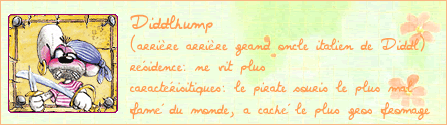 Diddlhump
(arrière arrière grand oncle italien de Diddl)
résidence: ne vit plus
caractérisitiques: le pirate souris le plus mal
famé du monde, a caché le plus gros fromage